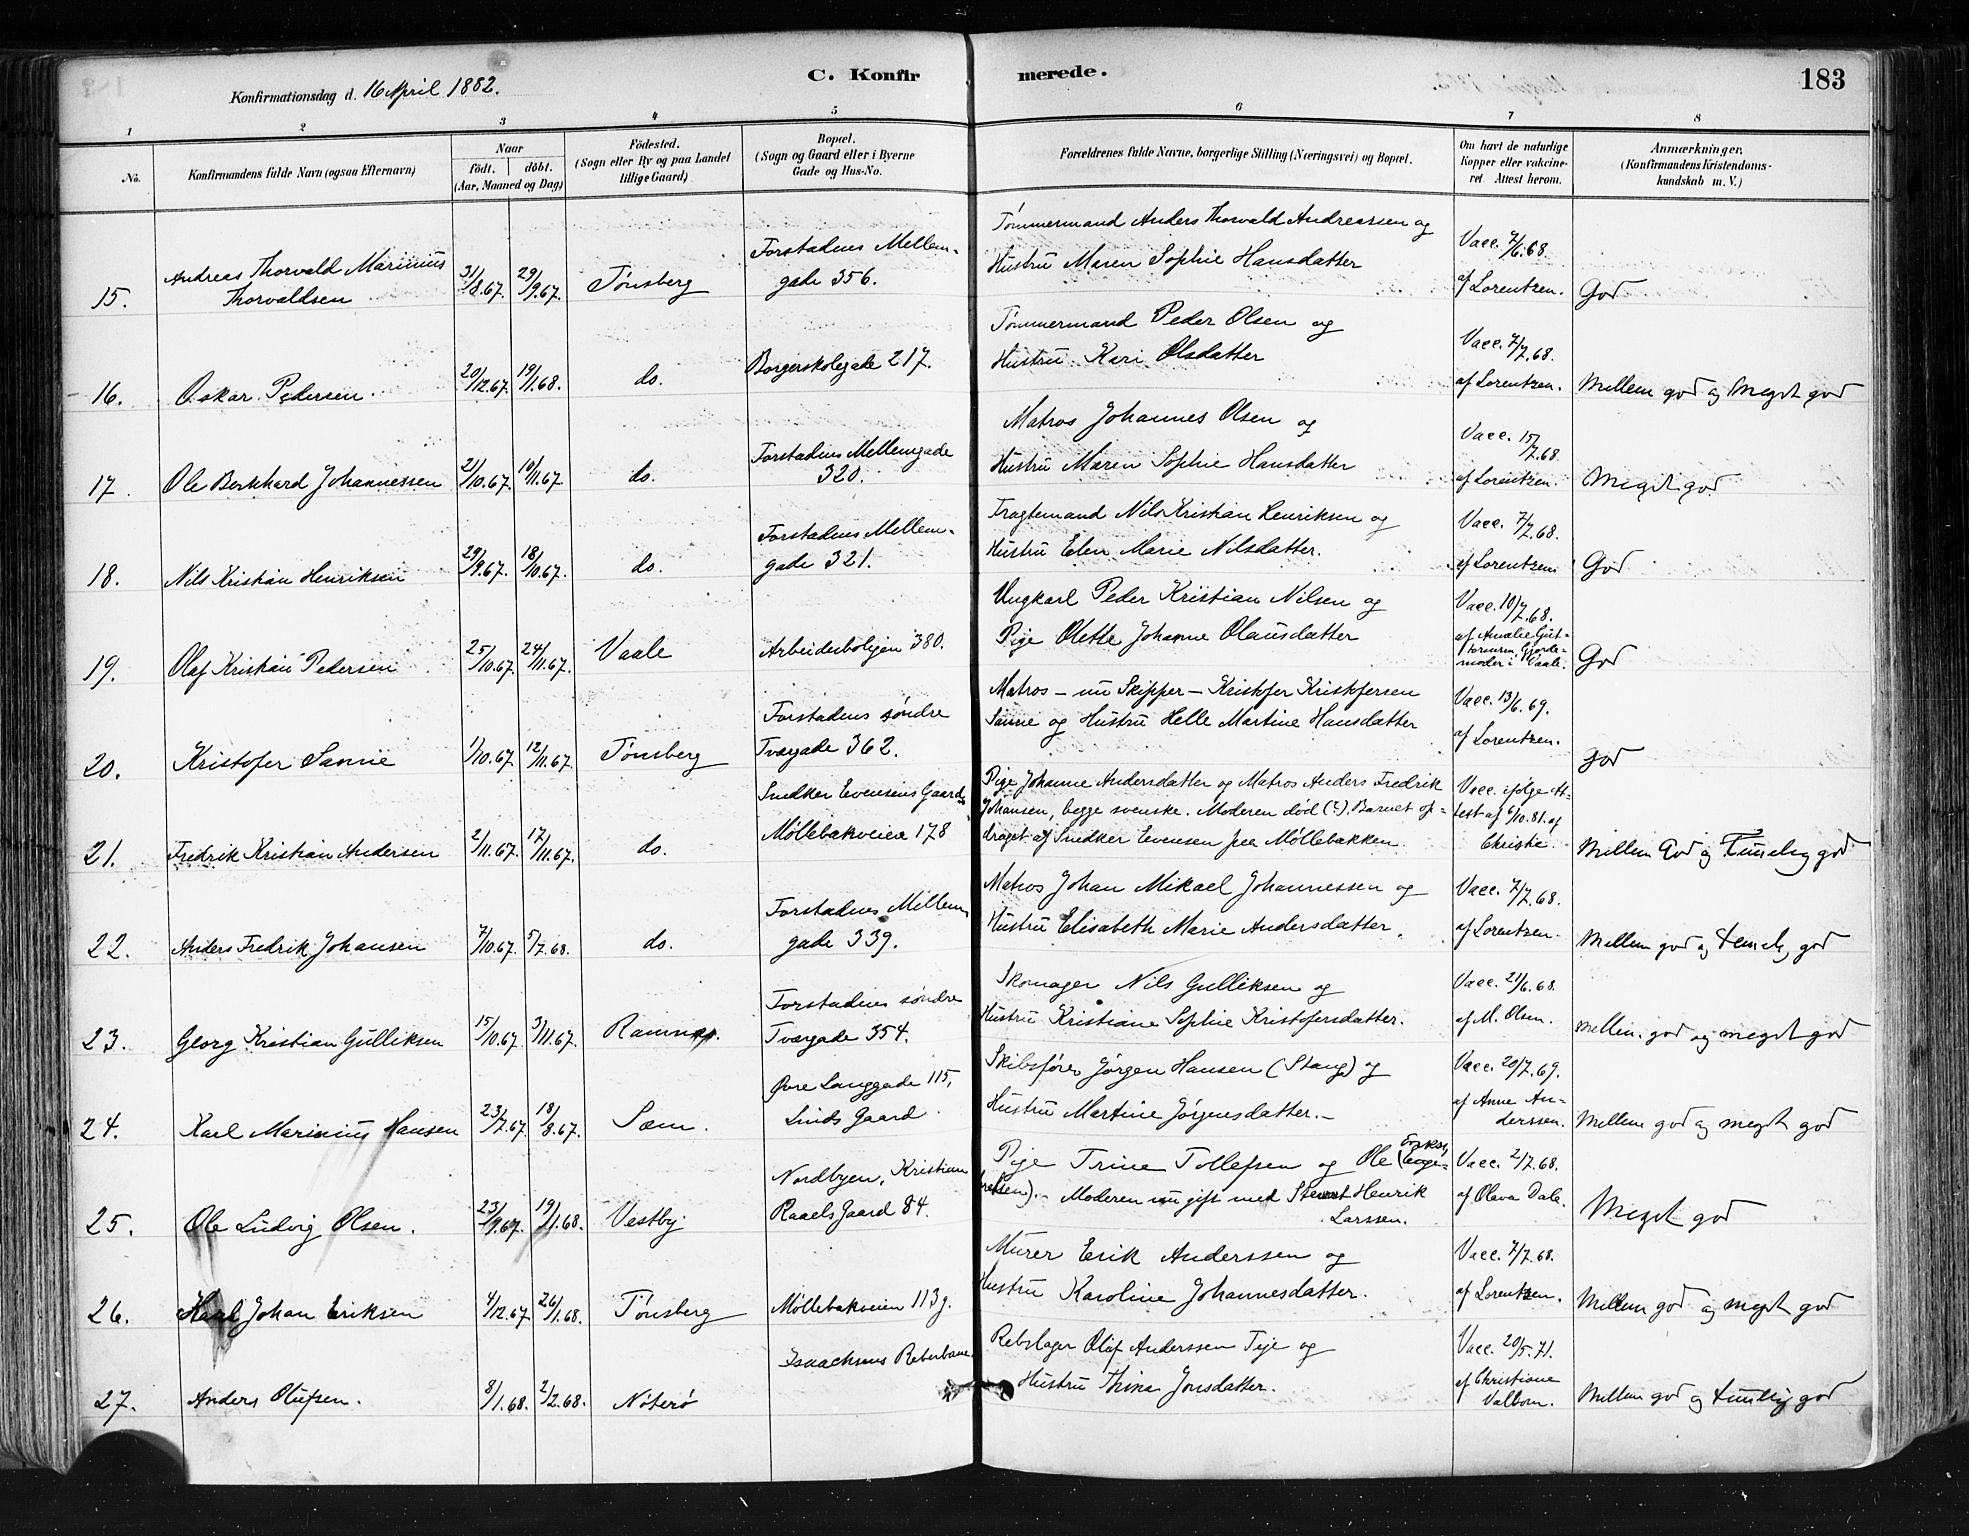 Konfirmationsdag d. 16 April 1882.
C. Konfir
merede.
183
1 2 3 4 5 6 7 8
No.
Konfirmandens fulde Navn (ogsaa Efternavn)
Naar
födt. döbt.
(Aar, Maaned og Dag)
Födested.
(Sogn eller By og paa Landet
tillige Gaard)
Bopæl.
(Sogn og Gaard eller i Byerne
Gade og Hus-No.
Forældrenes fulde Navne, borgerlige Stilling (Næringsvei) og Bopæl.
Om havt de naturlige
Kopper eller vakcine-
ret Attest herom.
Anmærkninger,
(Konfirmandens Kristendoms-
kundskab m. V.)
15. Andreas Thorvald Marinius
Thorvaldsen
31/8.67. 29/9.67. Tønsberg
Forstadens Mellem-
gade 356.
Tømmermand Anders Thorvald Andreassen og
Hustru Maren Sophie Hansdatter
Vacc. 7/6.68.
af Lorentzen.
God
16. Oskar Pedersen.
20/12.67. 19/1.68. do.
Borgerskolegade 217.
Tømmermand Peder Olsen og
Hustru Kari Olsdatter
Vacc. 7/7.68.
af Lorentzen.
Mellem god og Meget god
17. Ole Bernhard Johannessen
21/10.67. 10/11.67. do.
Forstadens Mellemgade
320.
Matros Johannes Olsen og
Hustru Maren Sophie Hansdatter
Vacc. 15/7.68.
af Lorentzen.
Meget god
18. Nils Kristian Henriksen
29/9.67. 18/10.67. do.
Forstadens Mellem-
gade 321.
Fragtemand Nils Kristian Henriksen og
Hustru Elen Marie Nilsdatter.
Vacc. 7/7.68.
af Lorentzen
God
19. Olaf Kristian Pedersen
25/10.67. 24/11.67. Vaale
Arbeiderboligen 380.
Ungkarl Peder Kristian Nilsen og
Pige Olette Johanne Olausdatter
Vacc. 10/7.68.
af Amalie Gut-
tormsen, Gjorde-
moder i Vaale.
God
20. Kristofer Sanne
1/10.67. 12/11.67. Tønsberg
Forstadens søndre
Tværgade 362.
Matros — nu Skipper — Kristofer Kristofersen
Sanne og Hustru Helle Martine Hansdatter
Vacc. 13/6.69.
af Lorentzen.
god
21. Fredrik Kristian Andersen
2/11.67. 17/11.67. do.
Snedker Evensens Gaard
Møllebakveien 178
Pige Johanne Andersdatter og Matros Anders Fredrik
Johansen, begge svenske. Moderen død (?). Barnet op-
draget af Snedker Evensen paa Møllebakken.
Vacc. ifølge At-
test af 6/10.81. af
Christie.
Mellem God og Temelig god
22. Anders Fredrik Johansen
7/10.67. 5/7.68. do.
Forstadens Mellem
gade 339.
Matros Johan Mikael Johannessen og
Hustru Elisabeth Marie Andersdatter.
Vacc. 7/7.68.
af Lorentzen.
Mellem god og temelig god
23. Georg Kristian Gulliksen
15/10.67. 3/11.67. Ramnes.
Forstadens søndre
Tværgade 354.
Skomager Nils Gulliksen og
Hustru Kristiane Sophie Kristofersdatter.
Vacc. 21/6.68.
af M. Olsen.
mellem god og meget god
24. Karl Marinius Hansen
23/7.67. 18/8.67. Sæm.
Øvre Langgade 115,
Linds Gaard.
Skibsfører Jørgen Hansen (Stang) og
Hustru Martine Jørgensdatter.
Vacc. 20/7.69.
af Anne An-
derssen.
Mellem god og meget god
25. Ole Ludvig Olsen.
23/9.67. 19/1.68. Vestby.
Nordbyen, Kristian
Raaels Gaard 84.
Pige Trine Tollefsen og Ole
Moderen nu gift med Stuert Henrik
Larssen.
Vacc. 2/7.68.
af Oleva Dale.
Meget god
26. Karl Johan Eriksen
4/12.67. 26/1.68. Tønsberg
Møllebakveien 113g.
Murer Erik Anderssen og
Hustru Karoline Johannesdatter.
Vacc. 7/7.68.
af Lorentzen.
Mellem god og meget god
27. Anders Olufsen.
8/1.68. 2/2.68. Nøterø
Isaachsens Reberbane.
Rebslager Oluf Anderssen Teje og
Hustru Thina Jonsdatter.
Vacc. 20/5.71.
af Christiane
Valbom.
Mellem god og temelig god